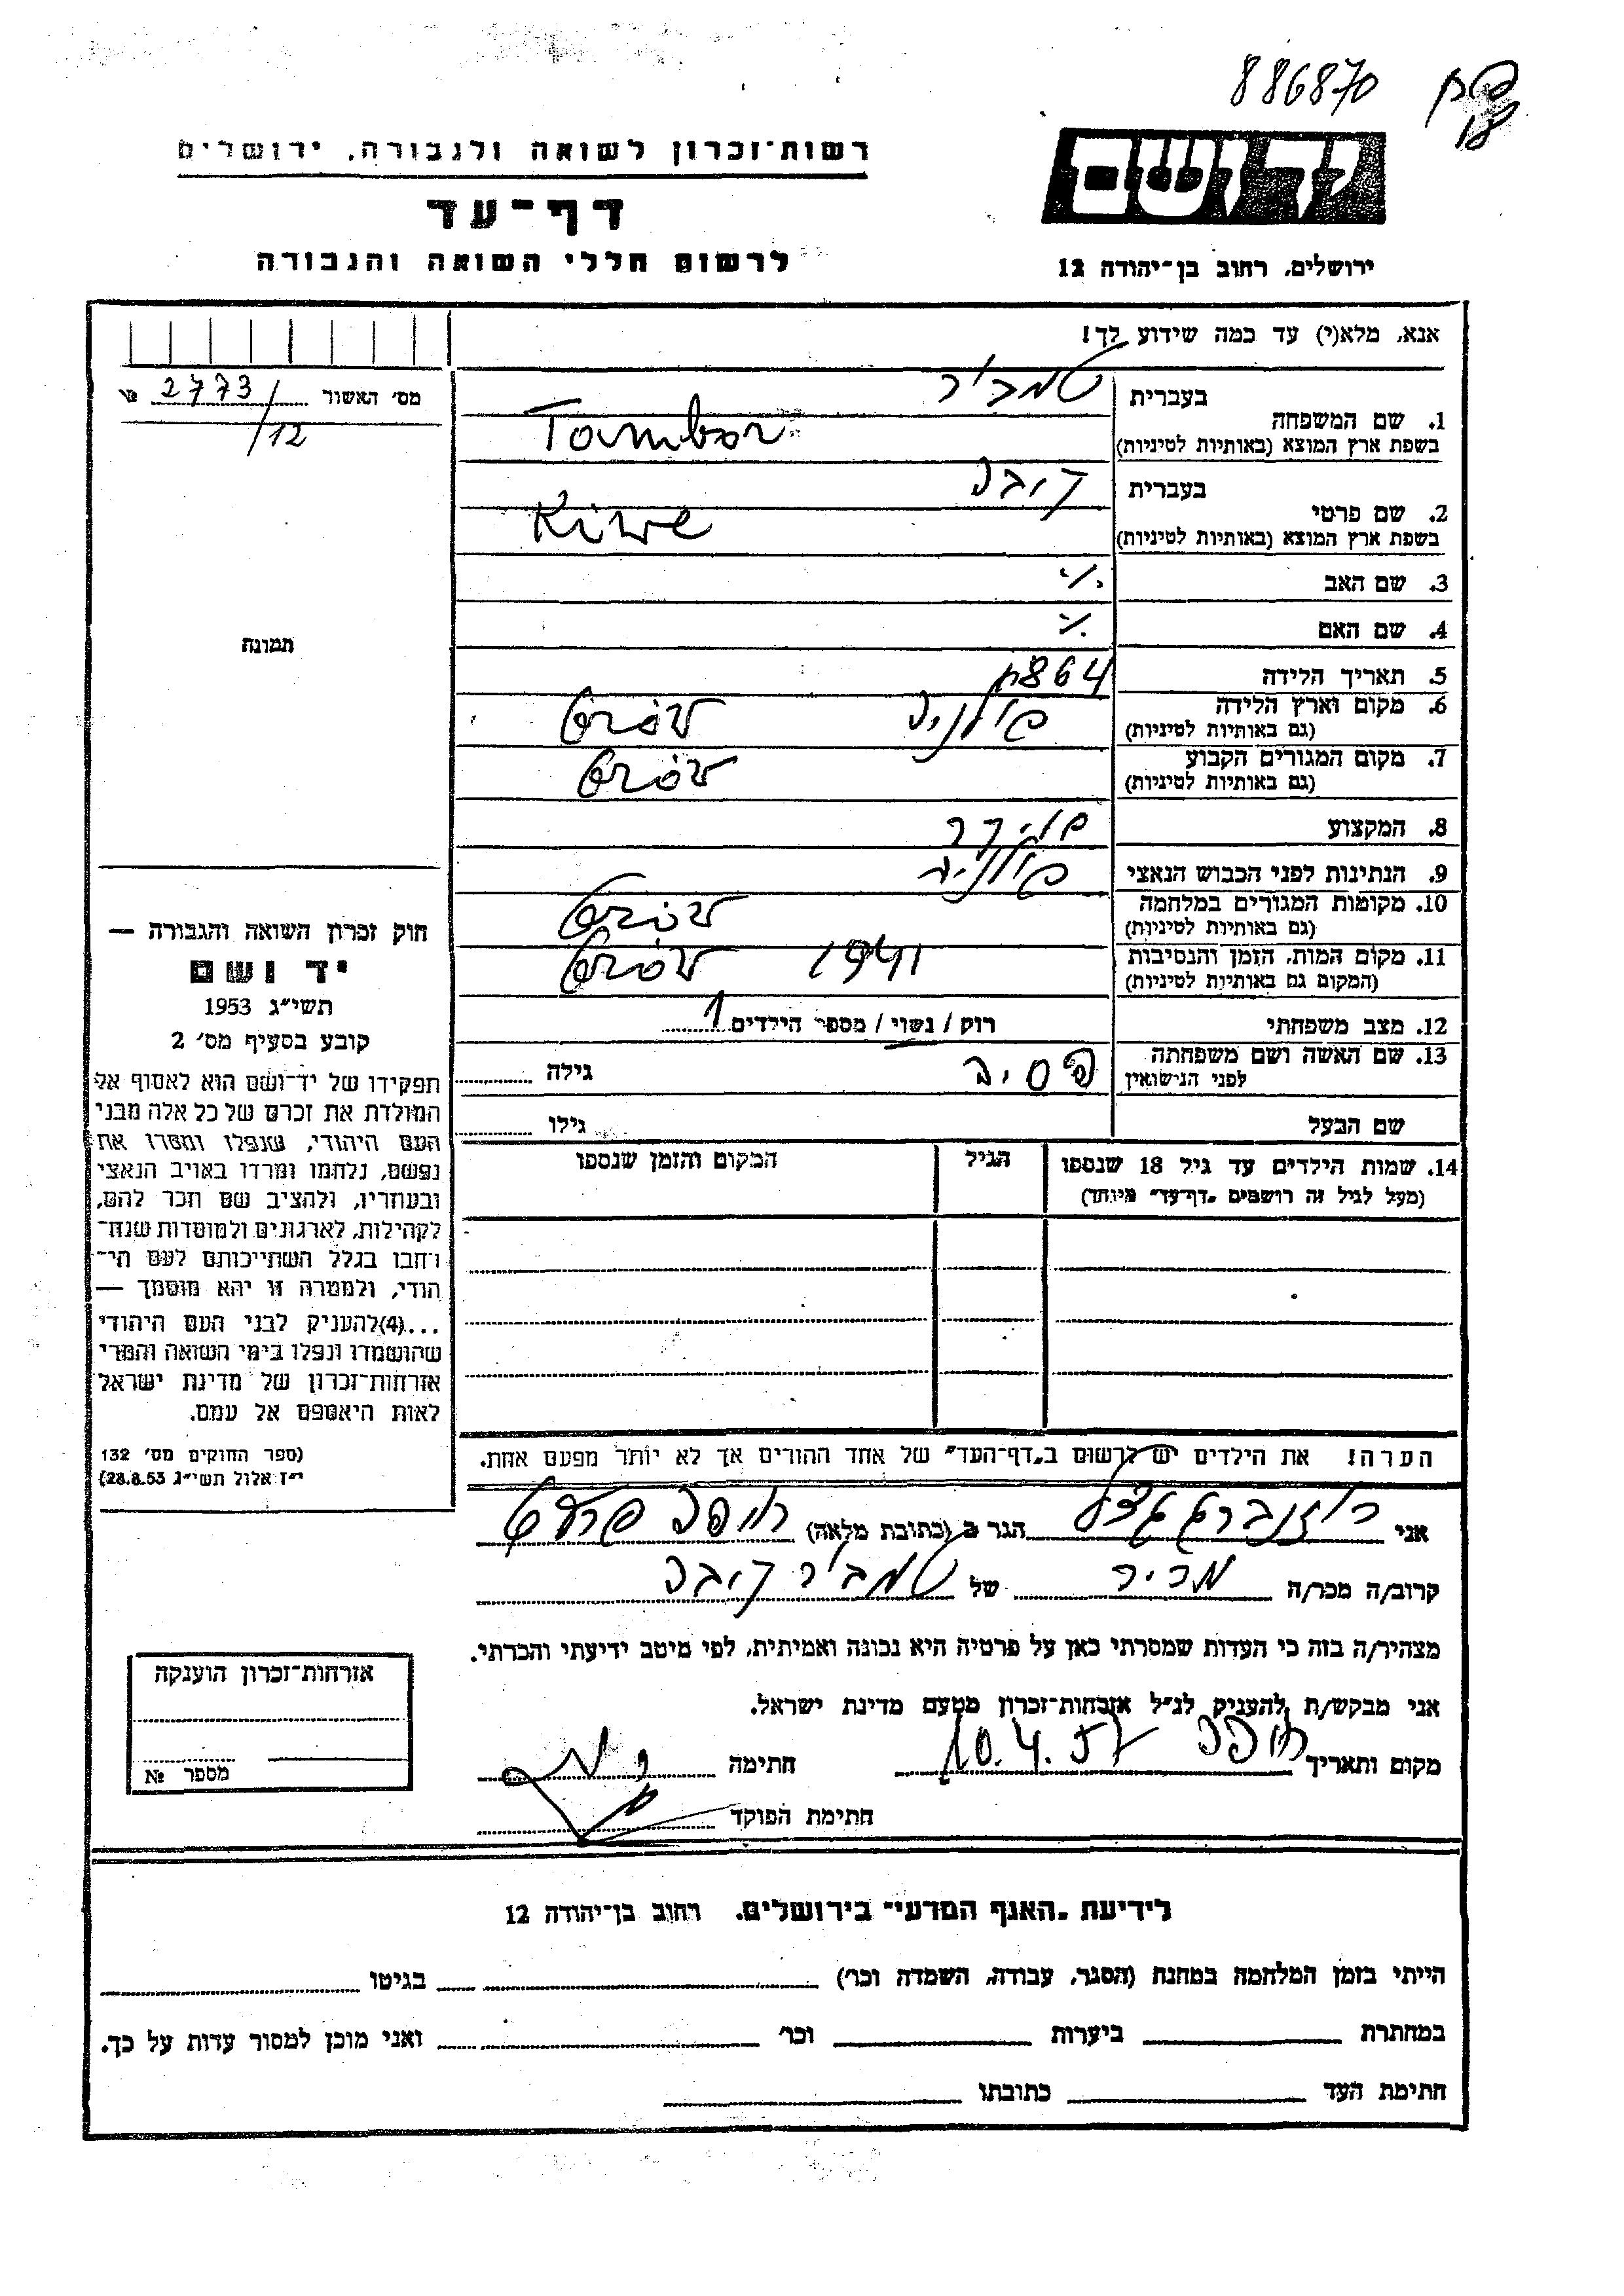 886870
רשות־זכרון לשואה ולגבורה, ירושלים
יד ושם
דף־עד
לרשום חללי השואה והגבורה
ירושלים, רחוב בן־יהודה 12
אנא, מלא(י) עד כמה שידוע לך!
מס׳ האשור 2773 №
/12
תמונה
בעברית
1. שם המשפחה
בשפת ארץ המוצא (באותיות לטיניות)
Tambor
בעברית קיבה
2. שם פרטי
בשפת ארץ המוצא (באותיות לטיניות)
Kiwe
3. שם האב ·/·
4. שם האם ·/·
5. תאריך הלידה 1864
6. מקום וארץ הלידה
(גם באותיות לטיניות)
פולניה
7. מקום המגורים הקבוע
(גם באותיות לטיניות)
8. המקצוע
9. הנתינות לפני הכבוש הנאצי
10. מקומות המגורים במלחמה
(גם באותיות לטיניות)
11. מקום המות, הזמן והנסיבות
(המקום גם באותיות לטיניות)
1941
12. מצב משפחתי רוק / נשוי / מספר הילדים 1
13. שם האשה ושם משפחתה
לפני הנישואין
גילה
שם הבעל גילו
14. שמות הילדים עד גיל 18 שנספו הגיל המקום והזמן שנספו
(מעל לגיל זה רושמים „דף־עד״ מיוחד)
הערה! את הילדים יש לרשום ב„דף־העד״ של אחד ההורים אך לא יותר מפעם אחת.
חוק זכרון השואה והגבורה —
יד ושם
תשי״ג 1953
קובע בסעיף מס׳ 2
תפקידו של יד־ושם הוא לאסוף אל
המולדת את זכרם של כל אלה מבני
העם היהודי, שנפלו ומסרו את
נפשם, נלחמו ומרדו באויב הנאצי
ובעוזריו, ולהציב שם וזכר להם,
לקהילות, לארגונים ולמוסדות שנח־
רבו בגלל השתייכותם לעם הי־
הודי, ולמטרה זו יהא מוסמך —
...(4)להעניק לבני העם היהודי
שהושמדו ונפלו בימי השואה והמרי
אזרחות־זכרון של מדינת ישראל
לאות היאספם אל עמם.
(ספר החוקים מס׳ 132
י״ז אלול תשי״ג 28.8.53)
אני הגר ב (כתובת מלאה) חיפה
קרוב/ה מכר/ה מכיר של קיבה
מצהיר/ה בזה כי העדות שמסרתי כאן על פרטיה היא נכונה ואמיתית, לפי מיטב ידיעתי והכרתי.
אני מבקש/ת להעניק לנ״ל אזרחות־זכרון מטעם מדינת ישראל.
מקום ותאריך חיפה 10.4.57 חתימה
חתימת הפוקד
אזרחות־זכרון הוענקה
מספר №
לידיעת „האגף המדעי״ בירושלים, רחוב בן־יהודה 12
הייתי בזמן המלחמה במחנה (הסגר, עבודה, השמדה וכר׳) בגיטו
במחתרת ביערות וכר׳ ואני מוכן למסור עדות על כך.
חתימת העד כתובתו